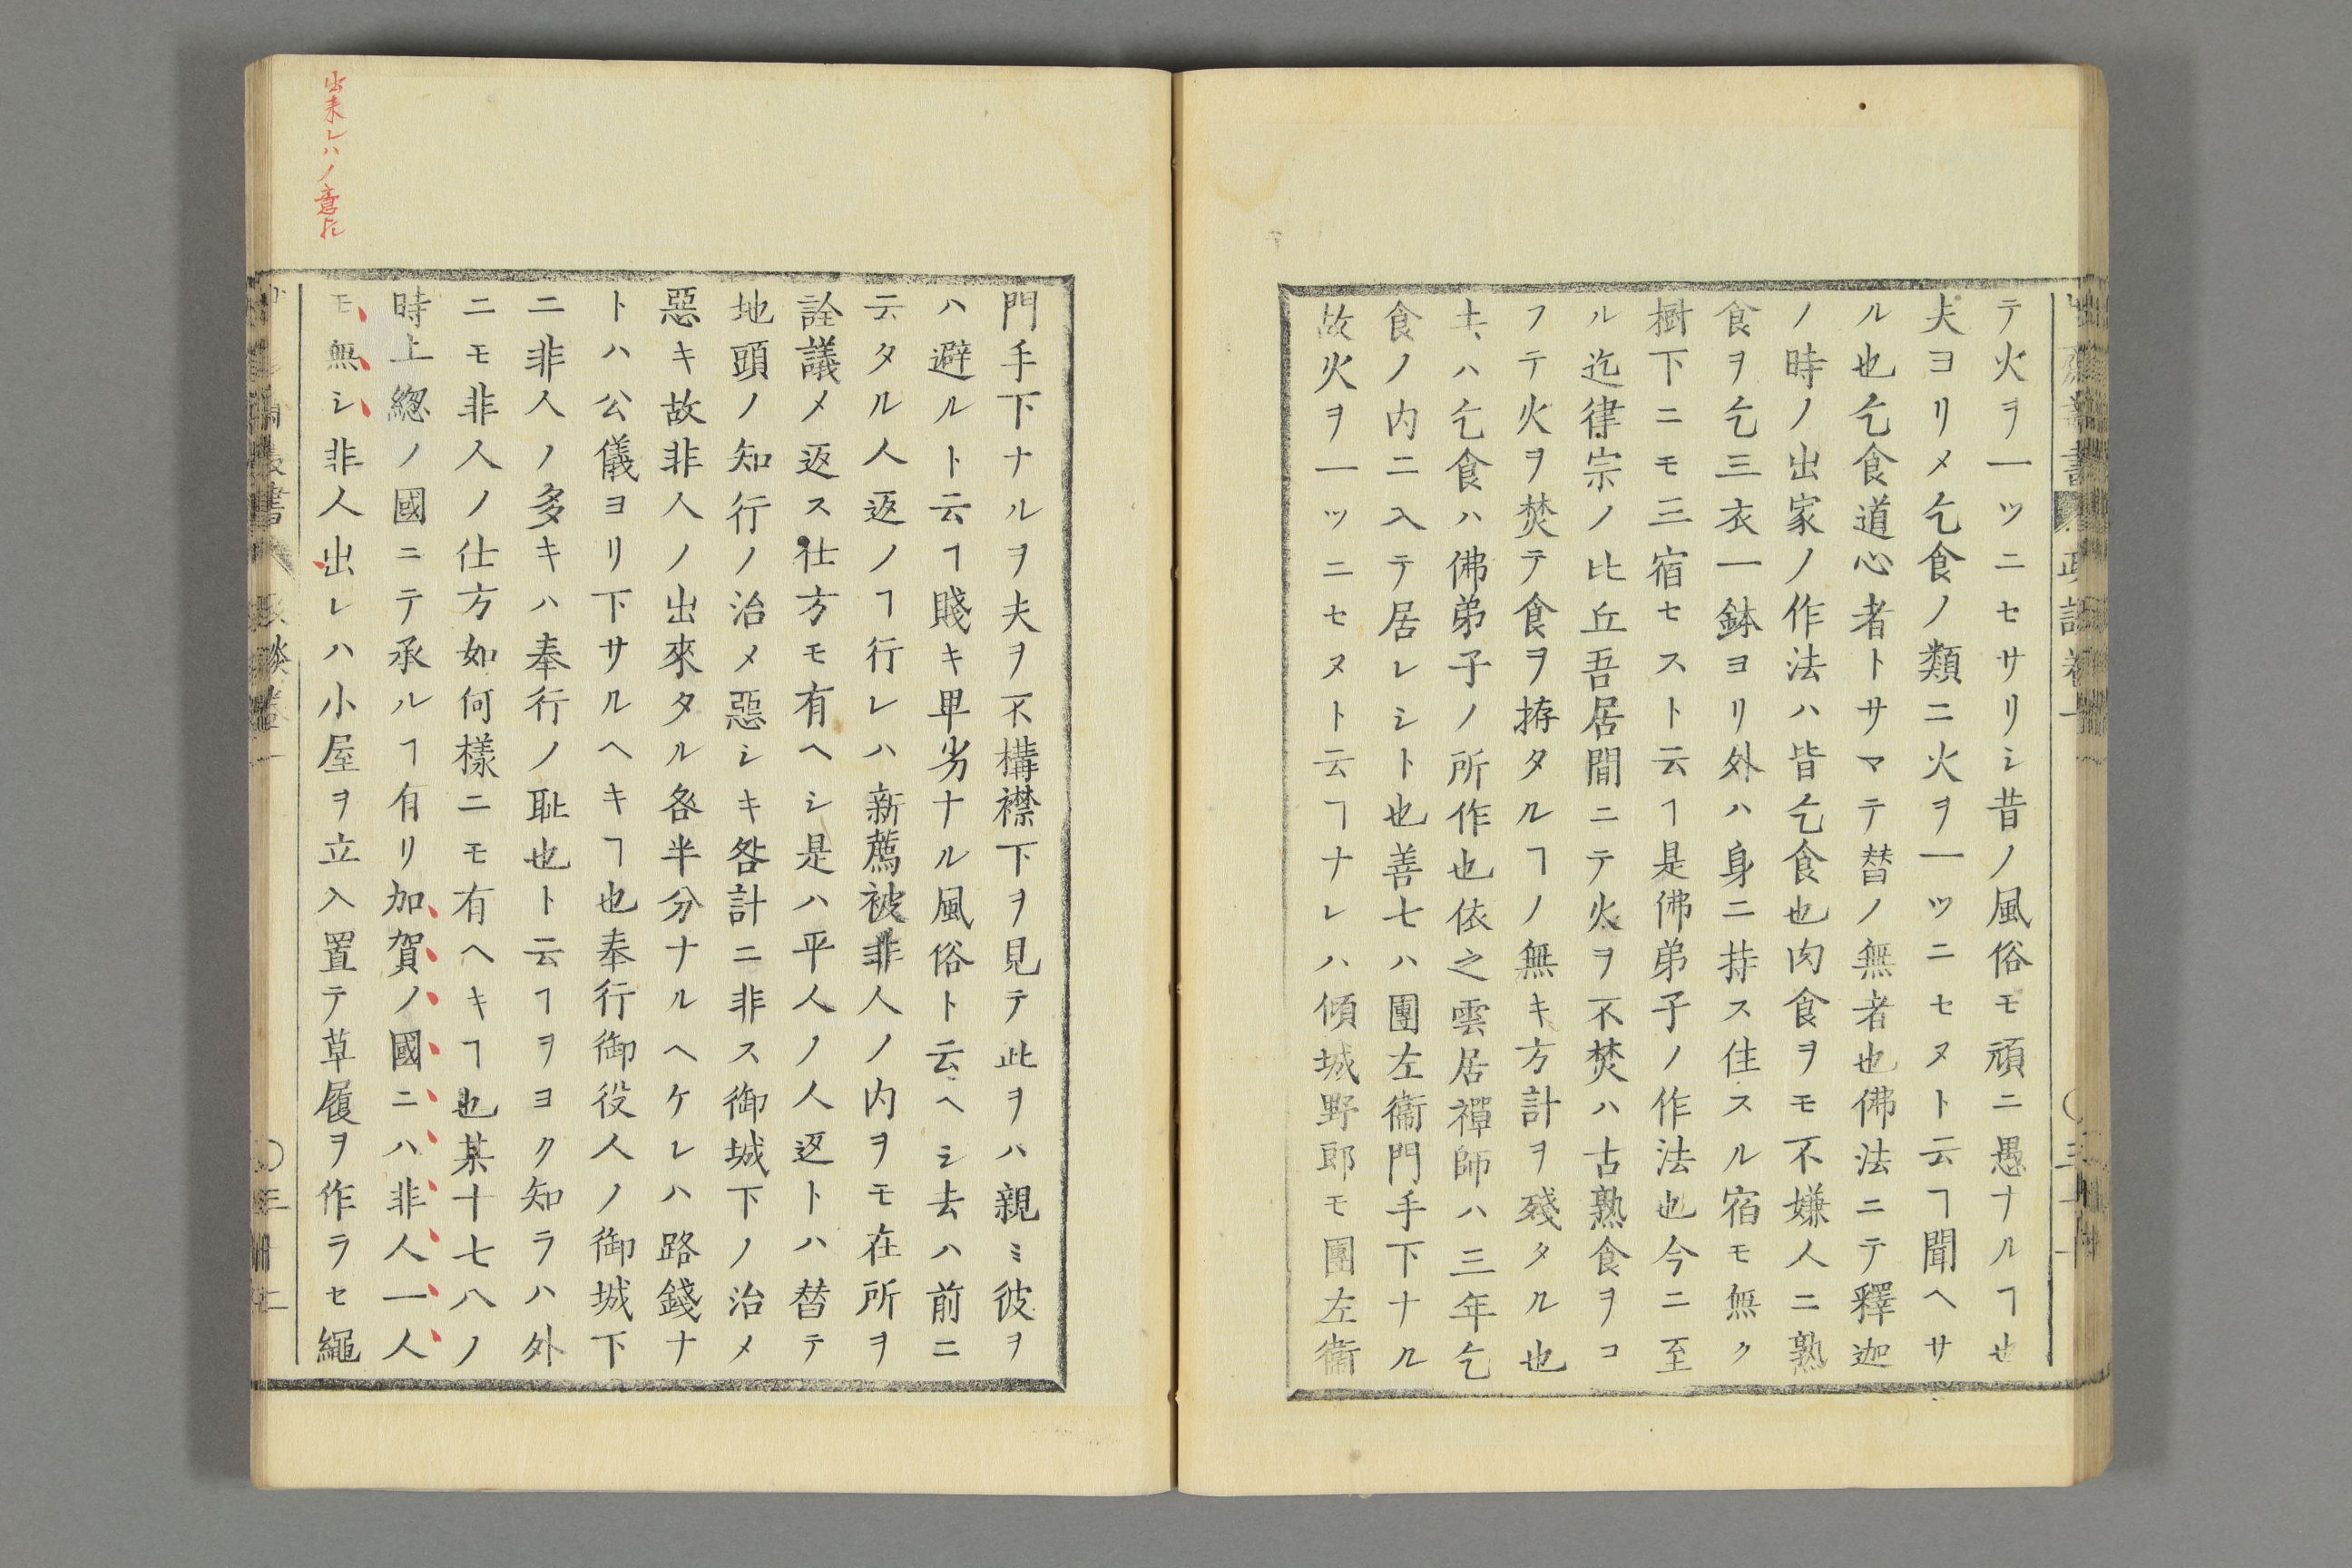 テ火ヲ一ツニセサリシ昔ノ風俗モ頑ニ愚ナルヿ也
夫ヨリメ乞食ノ類ニ火ヲ一ツニセヌト云ヿ聞ヘサ
ル也乞食道心者トサマテ替ノ無者也佛法ニテ釋迦
ノ時ノ出家ノ作法ハ皆乞食也肉食ヲモ不嫌人ニ熟
食ヲ乞三衣一鉢ヨリ外ハ身ニ持ス住スル宿モ無ク
樹下ニモ三宿セスト云ヿ是佛弟子ノ作法也今ニ至
ル迄律宗ノ比丘吾居間ニテ火ヲ不焚ハ古熟食ヲコ
フテ火ヲ焚テ食ヲ拵タルヿノ無キ方計ヲ殘タル也
去ハ乞食ハ佛弟子ノ所作也依之雲居禪師ハ三年乞
食ノ内ニ入テ居レシト也善七ハ團左衞門手下ナル
故火ヲ一ツニセヌト云ヿナレハ傾城野郎モ團左衞
門手下ナルヲ夫ヲ不構襟下ヲ見テ此ヲハ親ミ彼ヲ
ハ避ルト云ヿ賤キ卑劣ナル風俗ト云ヘシ去ハ前ニ
云タル人返ノヿ行レハ新薦被非人ノ内ヲモ在所ヲ
詮議メ返ス仕方モ有ヘシ是ハ平人ノ人返トハ替テ
地頭ノ知行ノ治メ惡シキ咎計ニ非ス御城下ノ治メ
惡キ故非人ノ出來タル咎半分ナルヘケレハ路錢ナ
トハ公儀ヨリ下サルヘキヿ也奉行御役人ノ御城下
ニ非人ノ多キハ奉行ノ耻也ト云ヿヲヨク知ラハ外
ニモ非人ノ仕方如何樣ニモ有ヘキヿ也某十七八ノ
時上總ノ國ニテ承ルヿ有リ加賀ノ國ニハ非人一人
モ無シ非人出レハ小屋ヲ立入置テ草履ヲ作ラセ繩
出来レハノ意也